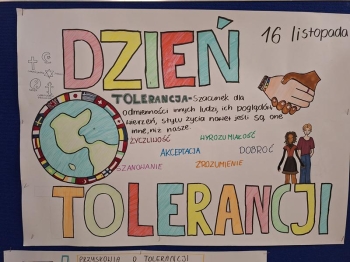 DZIEŃ
16 listopada
TOLERANCJA - Szacunek dla
odmienności innych ludzi, ich poglądów
wierzeń, stylu życia nawet jeśli są one
inne, niż nasze.
ŻYCZLIWOŚĆ
WYROZUMIAŁOŚĆ
AKCEPTACJA
DOBROĆ
SZANOWANIE
ZROZUMIENIE
TOLERANCJI
PRZYSŁOWIA O TOLERANCJI